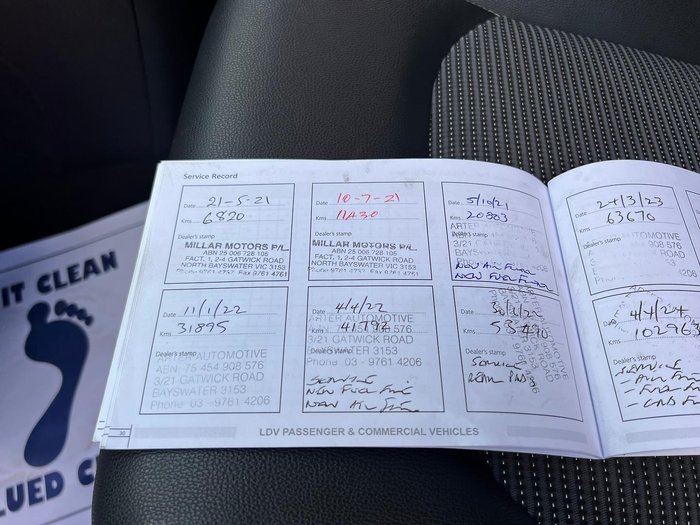 Service Record
Date 21-5-21
Kms 6820
Dealer's stamp
MILLAR MOTORS P/L
ABN 25 006 728 105
FACT. 1, 2-4 GATWICK ROAD
NORTH BAYSWATER VIC 3153
Phone 9761 4757 Fax 9761 4761
Date 10-7-21
Kms 11430
Dealer's stamp
MILLAR MOTORS P/L
ABN 25 006 728 105
FACT. 1, 2-4 GATWICK ROAD
NORTH BAYSWATER VIC 3153
Date 5/10/21
Kms 20803
Dealer's stamp
3/21 GATWICK
BAYSWATER
NEW AIR FILTER
NEW FUEL FILTER
Date 11/1/22
Kms 31895
Dealer's stamp
AUTOMOTIVE
ABN 75 454 908 576
3/21 GATWICK ROAD
BAYSWATER 3153
Phone 03 - 9761 4206
Date 4/4/22
Kms
ARTER AUTOMOTIVE
Dealer's stamp
3/21 GATWICK ROAD
BAYSWATER 3153
Phone 03 - 9761 4206
SERVICE
NEW FUEL FILTER
NEW AIR FILTER
Date
Kms 53490
Dealer's stamp
SERVICE
REAR PADS
Date 24/3/23
Kms 63670
Dealer's stamp
AUTOMOTIVE
908 576
ROAD
Date 4/4/24
102963
Dealer's stamp
SERVICE
- AIR
- FUEL
30
LDV PASSENGER & COMMERCIAL VEHICLES
IT CLEAN